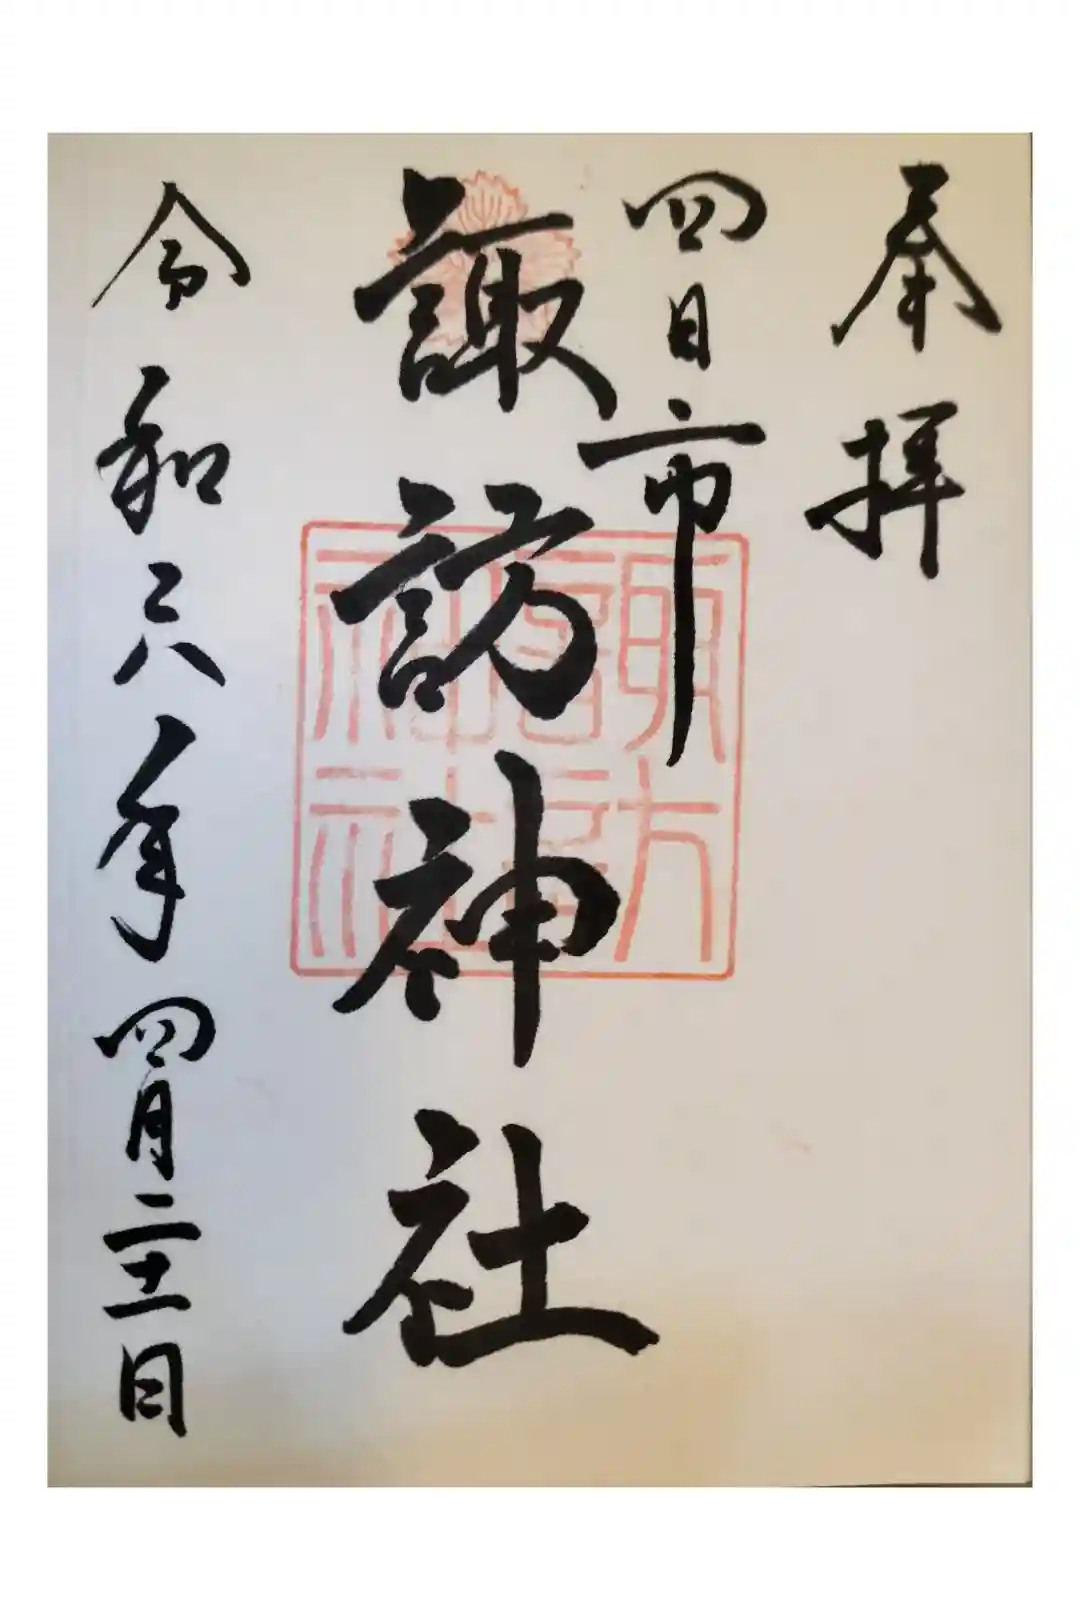 奉拝
四日市
諏訪神社
令和六年四月二十一日
諏訪
神社